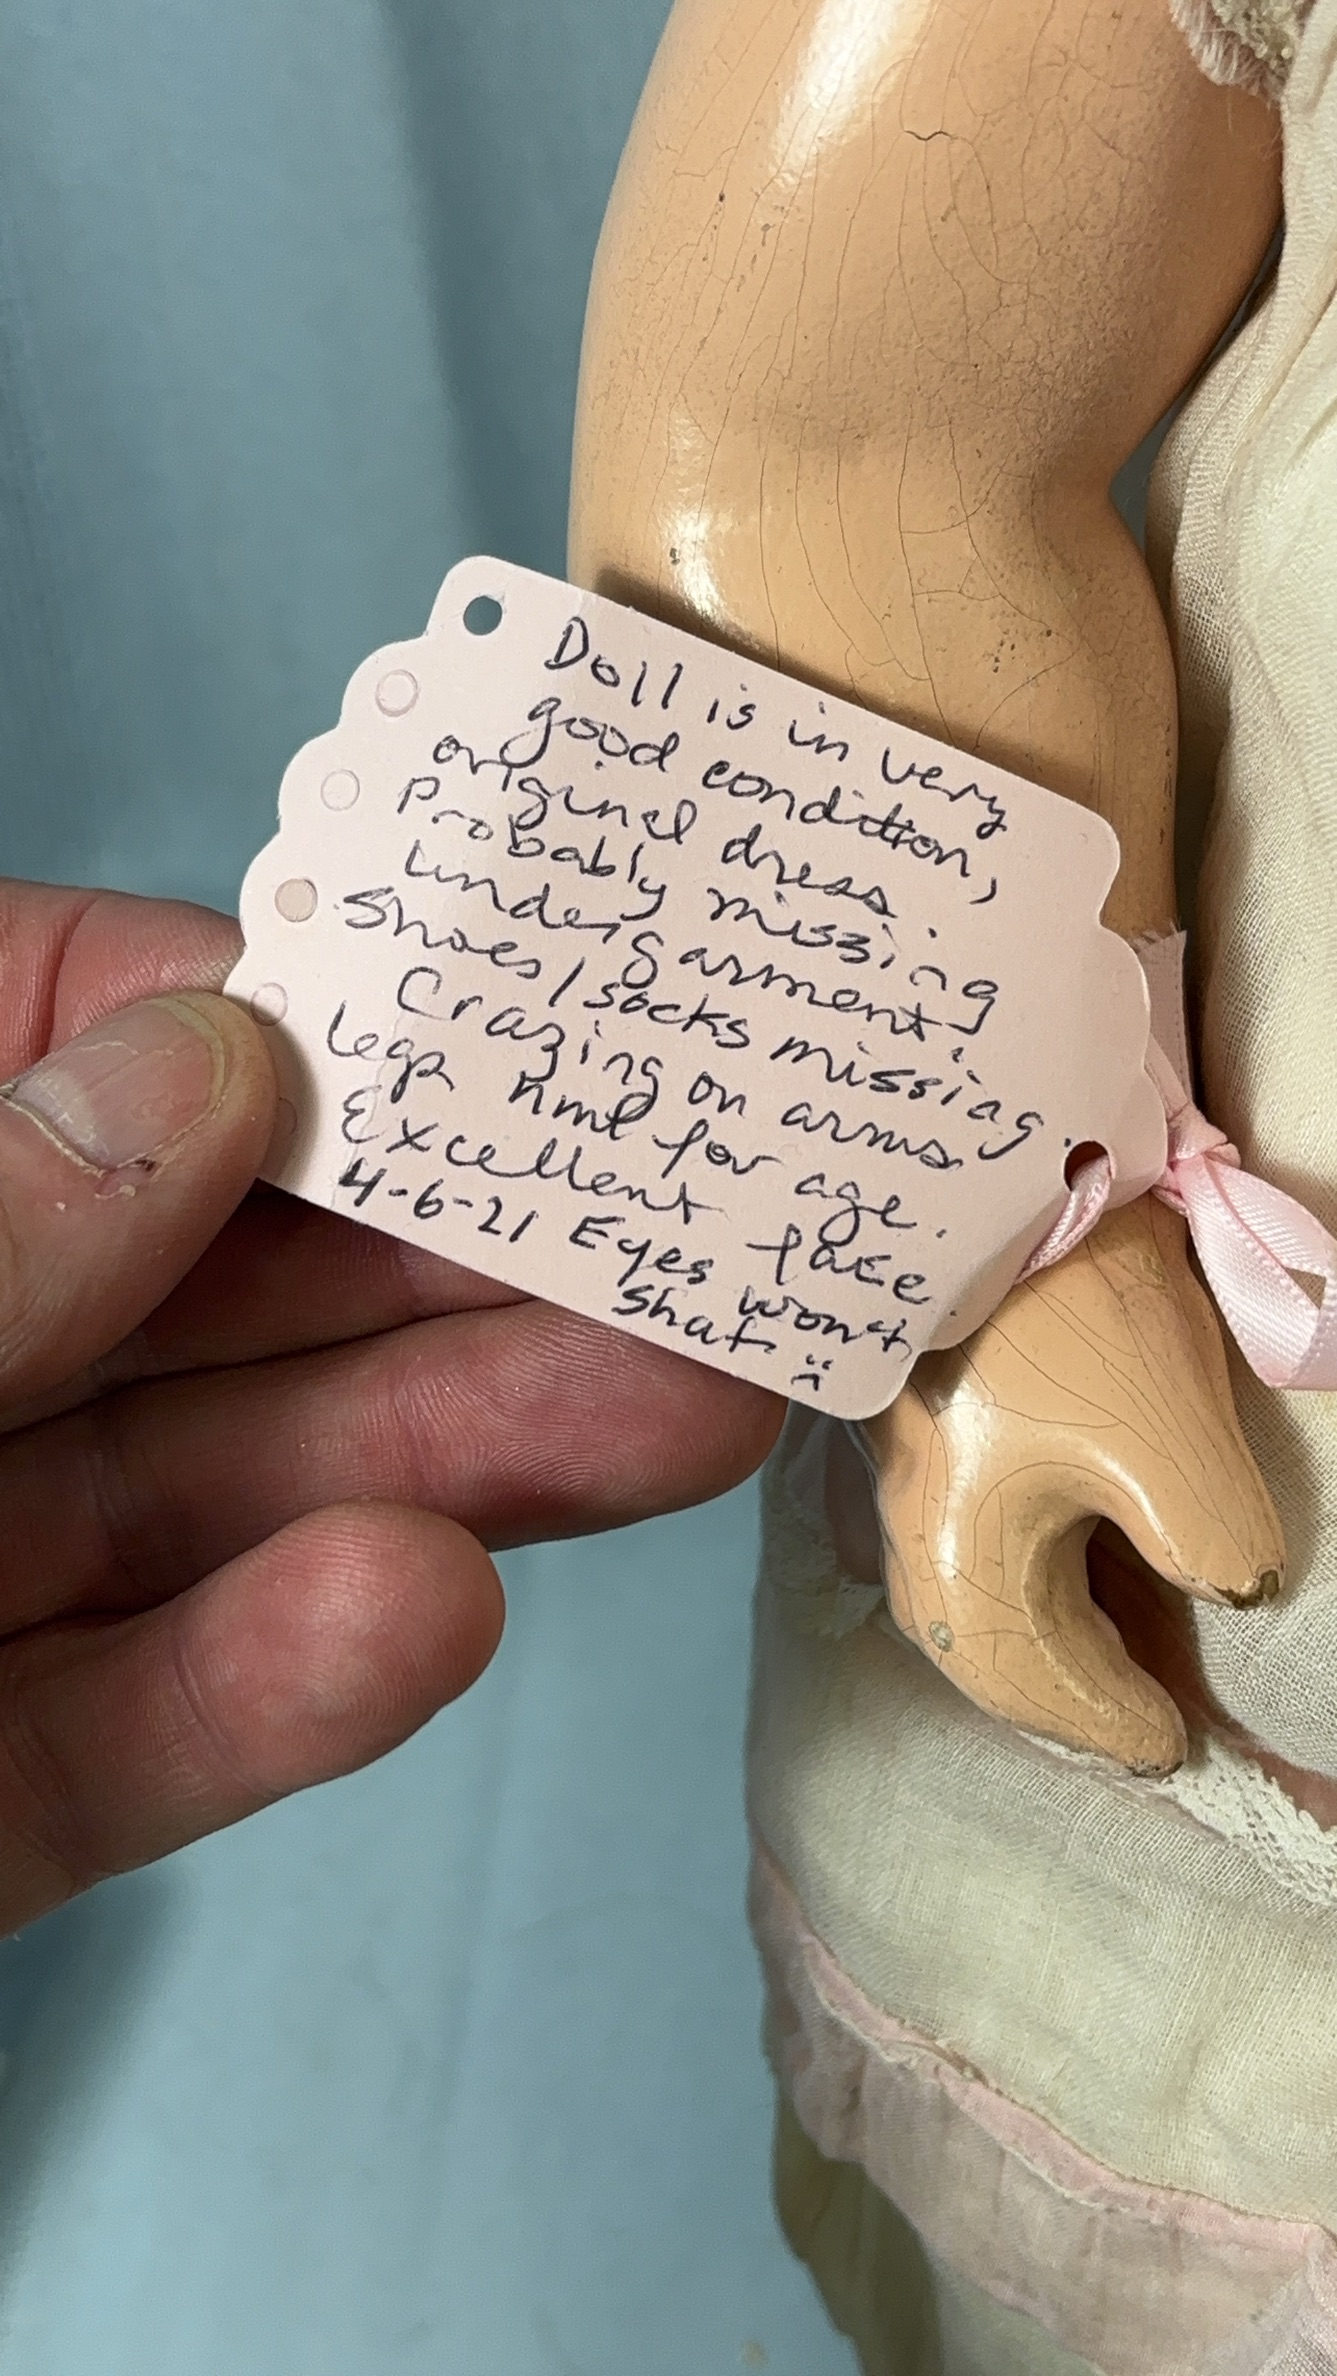 Doll is in very
good condition,
original dress.
Probably missing
undergarment.
Shoes/socks missing.
Crazing on arms
legs nml for age.
Excellent face.
4-6-21 Eyes won't
shut :(